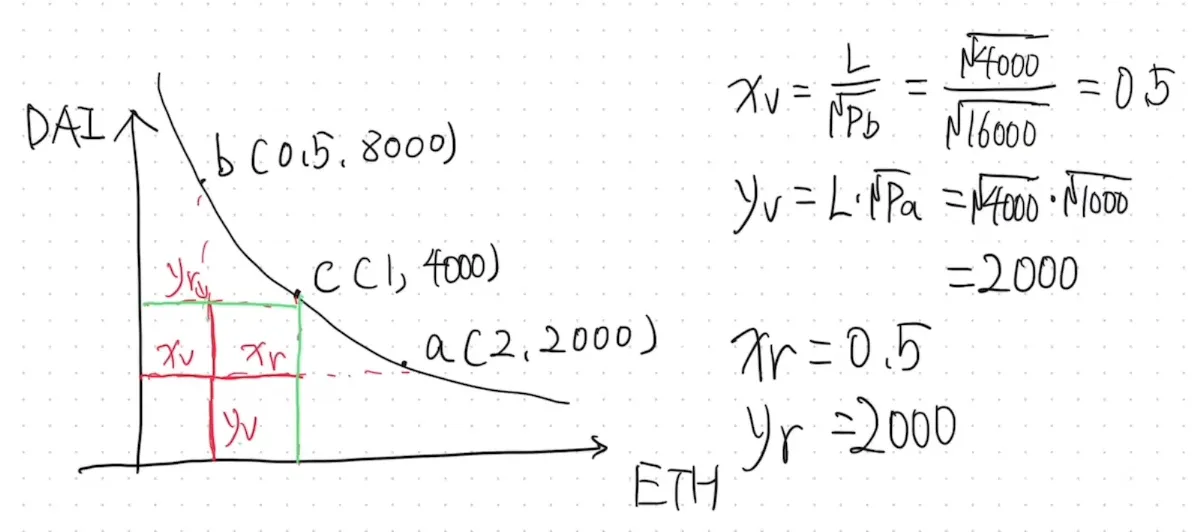 DAI
b (0.5, 8000)
yr
c (1, 4000)
xv
xr
a (2, 2000)
yv
ETH
xv = L/√Pb = √4000/√16000 = 0.5
yv = L·√Pa = √4000·√1000
= 2000
xr = 0.5
yr = 2000